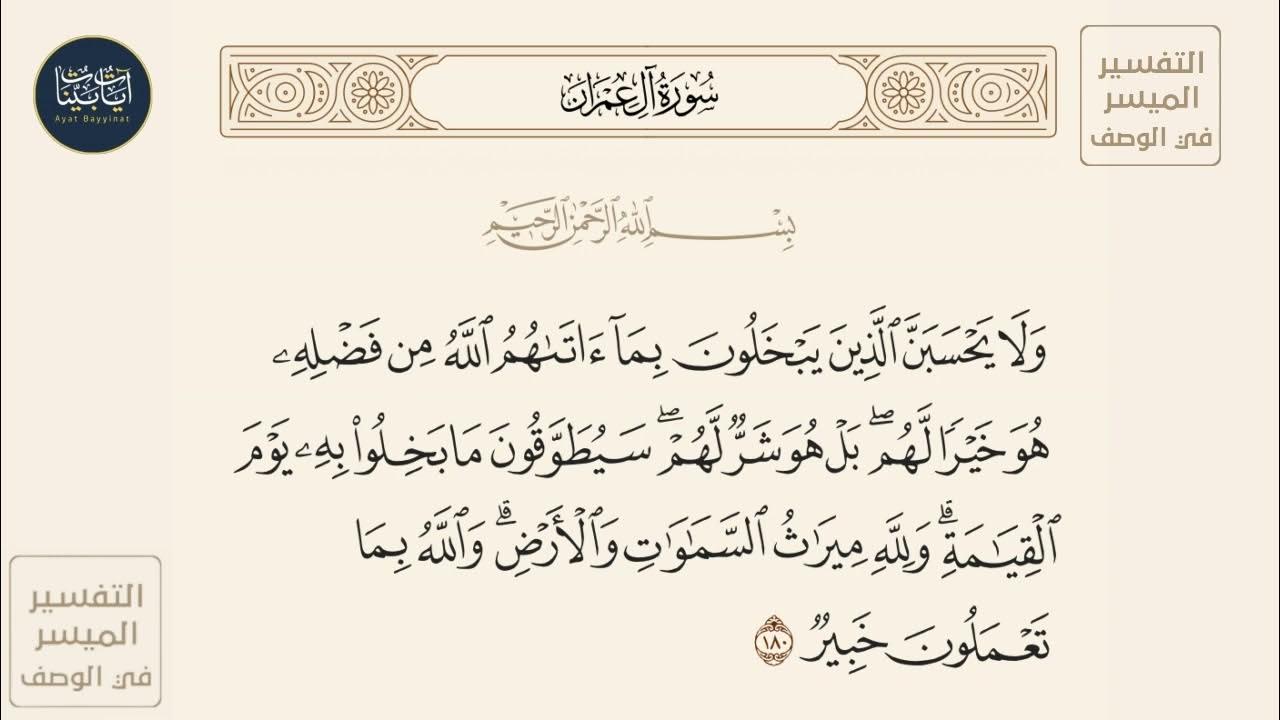 آيات بينات
Ayat Bayyinat
سُورَةُ آلِ عِمْرَان
التفسير
الميسر
في الوصف
بِسْمِ ٱللَّهِ ٱلرَّحْمَٰنِ ٱلرَّحِيمِ
وَلَا يَحْسَبَنَّ ٱلَّذِينَ يَبْخَلُونَ بِمَآ ءَاتَىٰهُمُ ٱللَّهُ مِن فَضْلِهِۦ
هُوَ خَيْرًا لَّهُم ۖ بَلْ هُوَ شَرٌّ لَّهُمْ ۖ سَيُطَوَّقُونَ مَا بَخِلُوا۟ بِهِۦ يَوْمَ
ٱلْقِيَٰمَةِ ۗ وَلِلَّهِ مِيرَٰثُ ٱلسَّمَٰوَٰتِ وَٱلْأَرْضِ ۗ وَٱللَّهُ بِمَا
تَعْمَلُونَ خَبِيرٌ ١٨٠
التفسير
الميسر
في الوصف